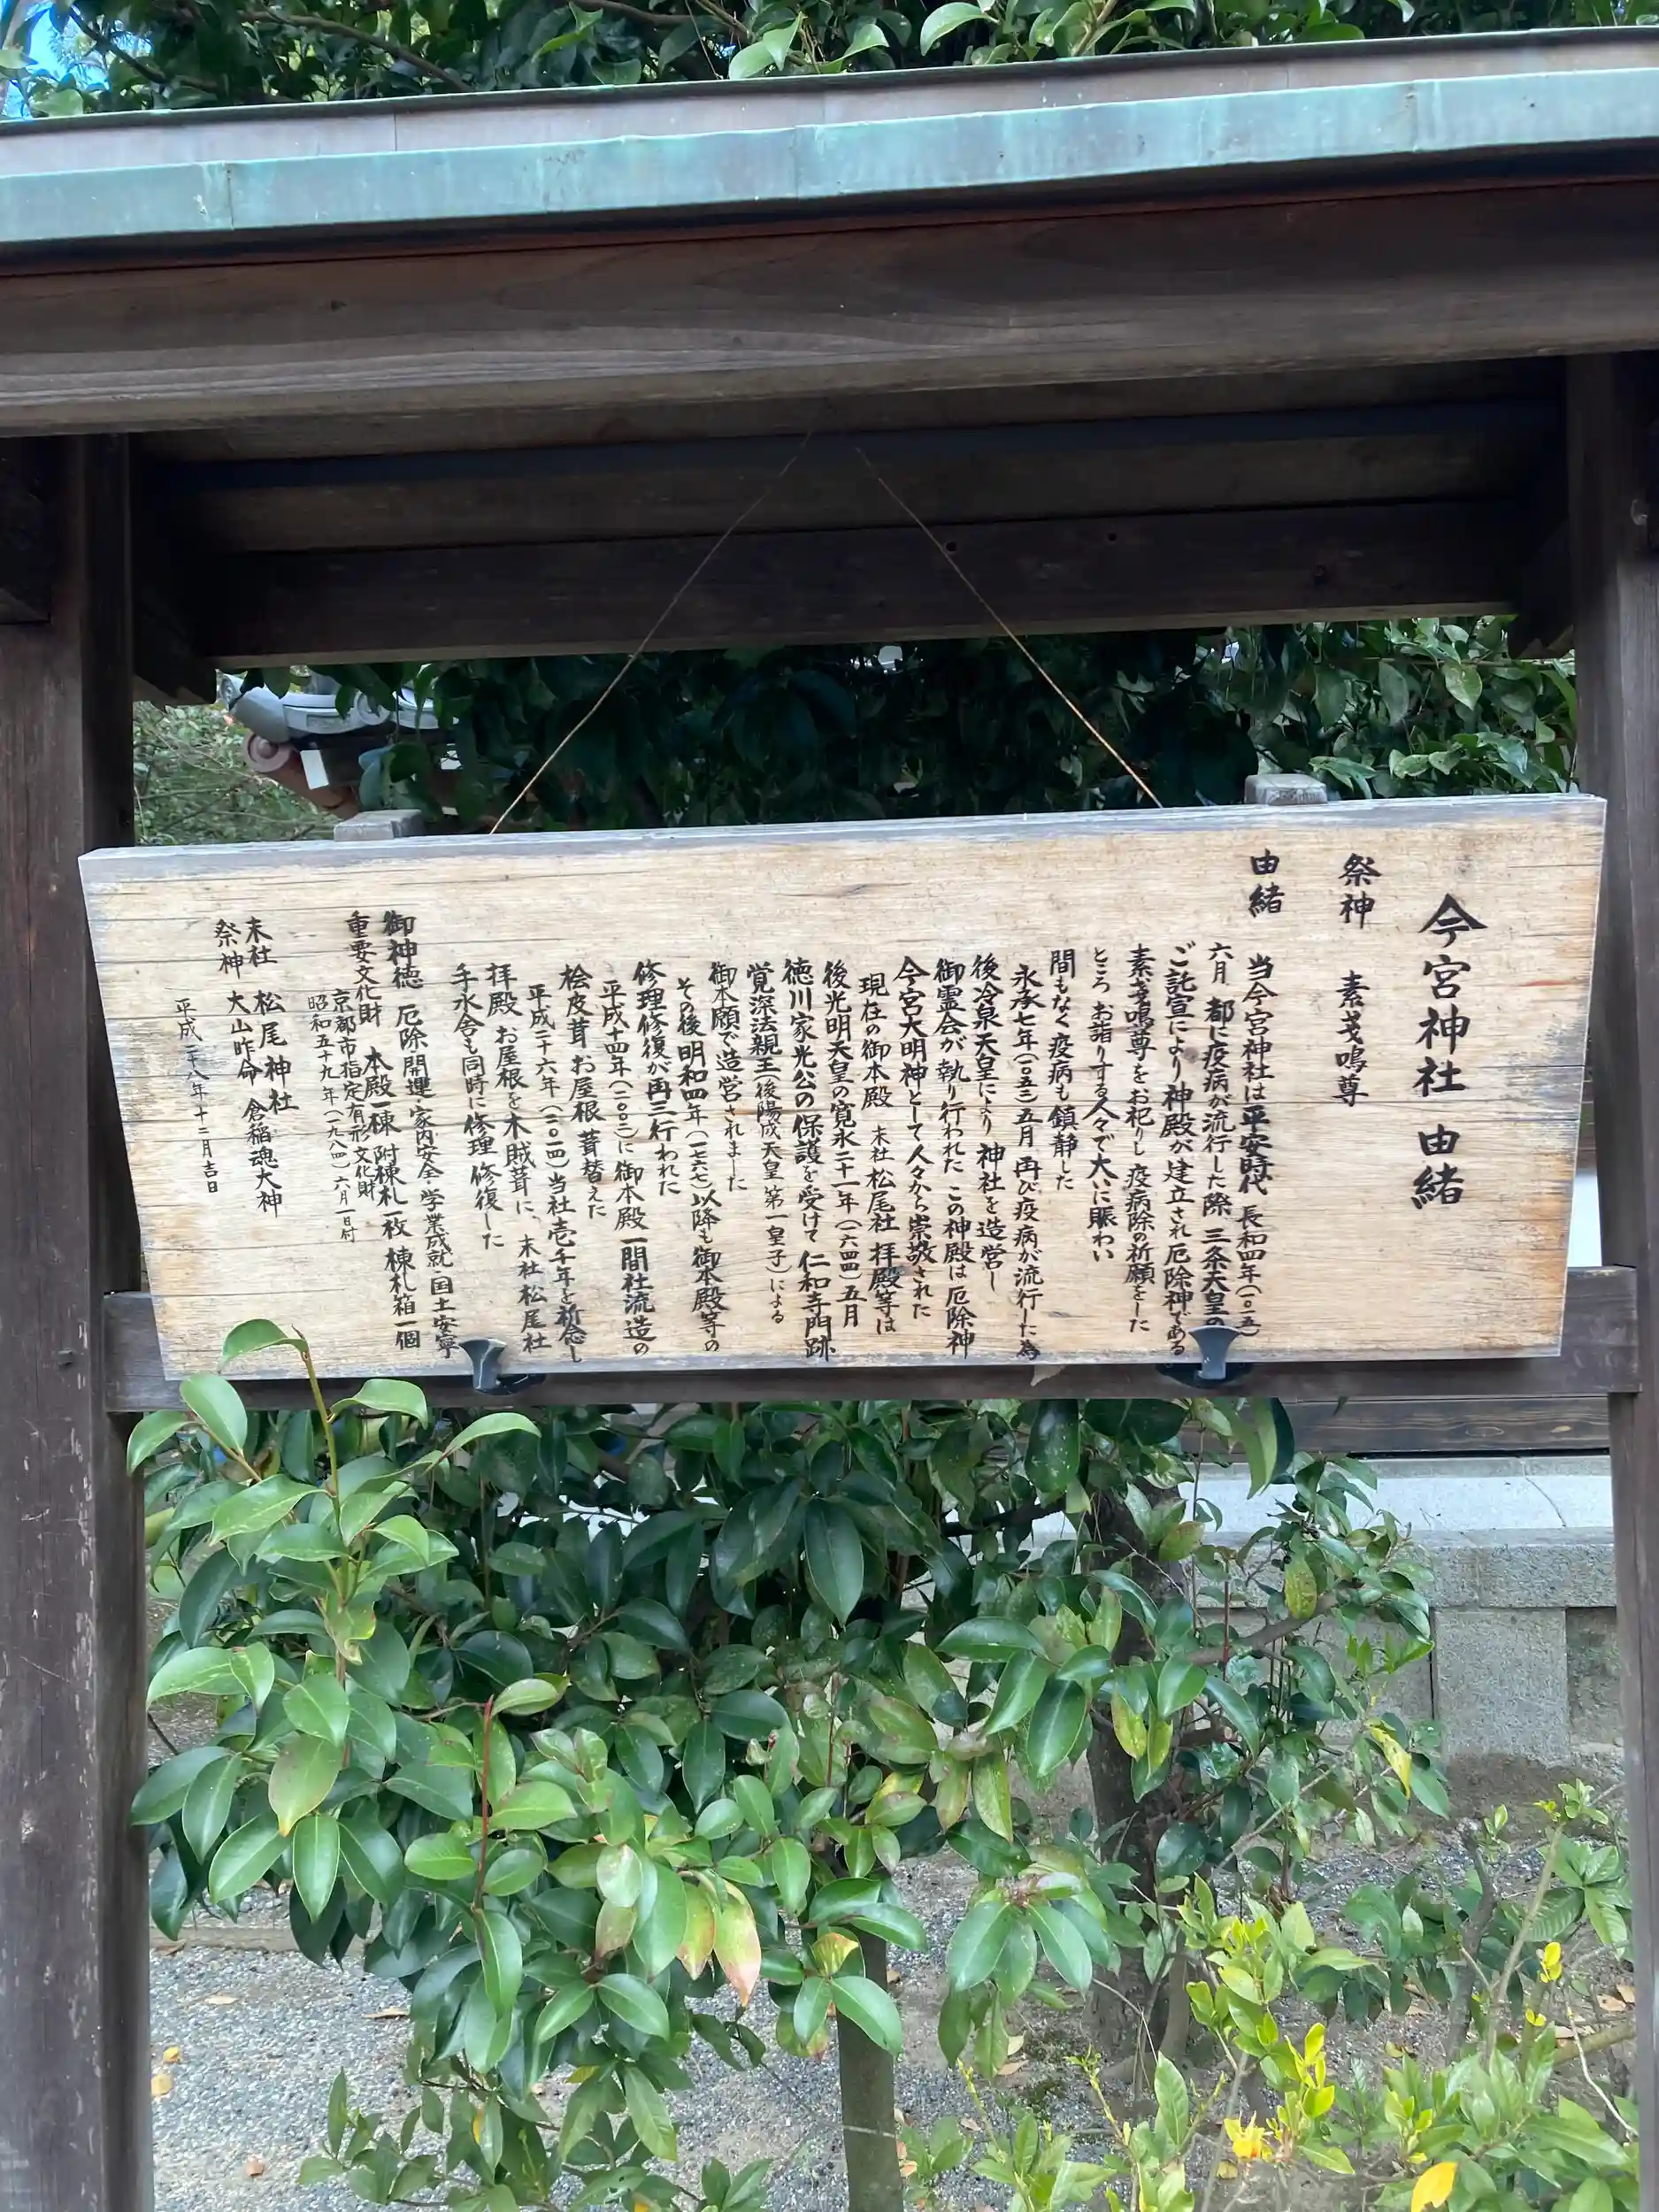 今宮神社 由緒
祭神 素戔嗚尊
由緒
当今宮神社は平安時代 長和四年(一〇一五)
六月 都に疫病が流行した際 三条天皇の
ご託宣により神殿が建立され厄除神である
素戔嗚尊をお祀りし 疫病除の祈願をした
ところ お詣りする人々で大いに賑わい
間もなく疫病も鎮静した
永承七年(一〇五二)五月 再び疫病が流行した為
後冷泉天皇により 神社を造営し
御霊会が執り行われた この神殿は厄除神
今宮大明神として人々から崇敬された
現在の御本殿 末社 松尾社 拝殿等は
後光明天皇の寛永二十一年(一六四四)五月
徳川家光公の保護を受けて 仁和寺門跡
覚深法親王(後陽成天皇 第一皇子)による
御本願で造営されました
その後 明和四年(一七六七)以降も御本殿等の
修理修復が再三行われた
平成十四年(二〇〇二)に 御本殿 一間社流造の
桧皮葺 お屋根 葺替えた
平成二十六年(二〇一四)当社壱千年を祈念し
拝殿 お屋根を木賊葺に、末社 松尾社
手水舎も同時に修理 修復した
御神徳 厄除 開運 家内安全 学業成就 国土安寧
重要文化財 本殿一棟 附棟札一枚 棟札箱一個
京都市指定有形文化財
昭和五十九年(一九八四)六月一日付
末社 松尾神社
祭神 大山咋命 倉稲魂大神
平成二十八年十二月吉日